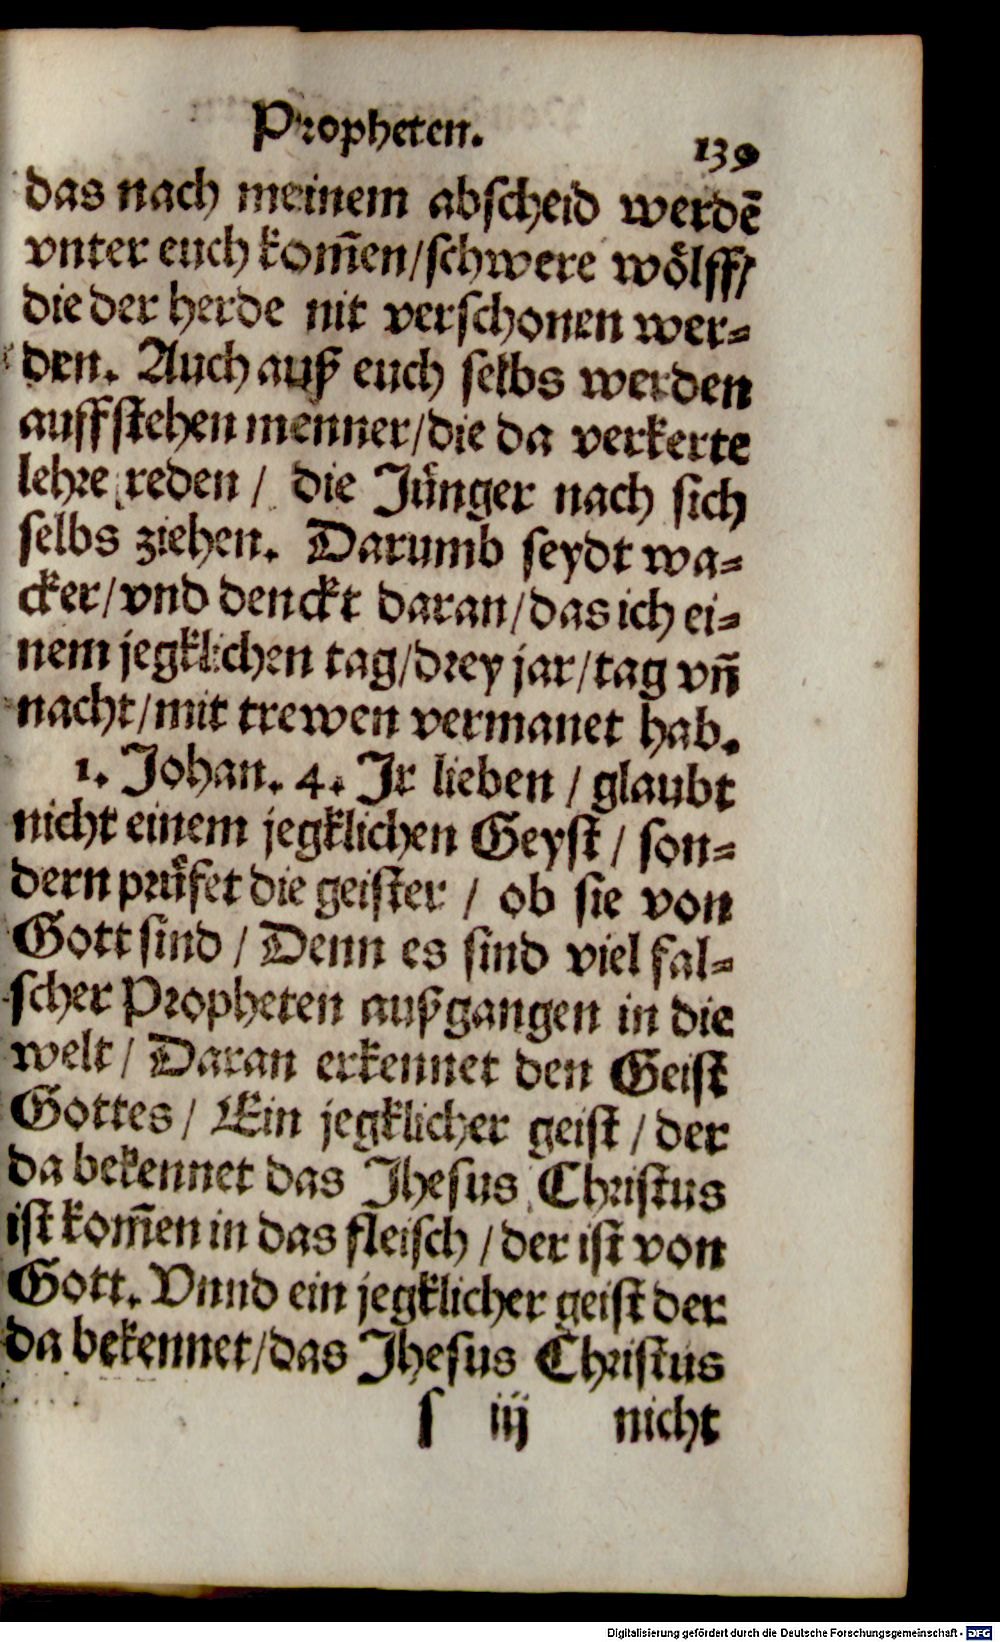 Propheten.
139
das nach meinem abscheid werdẽ
vnter euch kom̃en/schwere wölff/
die der herde nit verschonen wer-
den. Auch auß euch selbs werden
auffstehen menner/die da verkerte
lehre reden / die Jünger nach sich
selbs ziehen. Darumb seydt wa-
cker/vnd denckt daran/das ich ei-
nem jegklichen tag/drey jar/tag vñ
nacht/mit trewen vermanet hab.
1. Johan. 4. Jr lieben / glaubt
nicht einem jegklichen Geyst / son-
dern prüfet die geister / ob sie von
Gott sind / Denn es sind viel fal-
scher Propheten außgangen in die
welt / Daran erkennet den Geist
Gottes / Ein jegklicher geist / der
da bekennet das Jhesus Christus
ist kom̃en in das fleisch / der ist von
Gott. Vnnd ein jegklicher geist der
da bekennet/das Jhesus Christus
s iij nicht
Digitalisierung gefördert durch die Deutsche Forschungsgemeinschaft - DFG